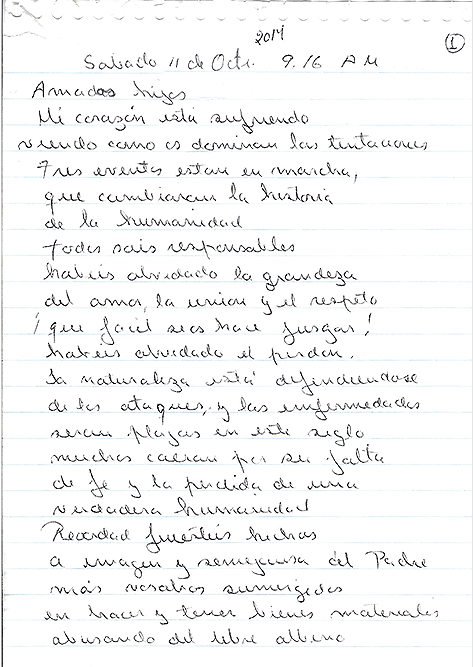 2014
I
Sabado 11 de Oct. 9.16 AM
Amados hijos
Mi corazón está sufriendo
viendo como os dominan las tentaciones
Tres eventos estan en marcha,
que cambiaran la historia
de la humanidad
todos sois responsables
habeis olvidado la grandeza
del amor, la union y el respeto
¡que facil se os hace jusgar!
habeis olvidado el perdon.
La naturaleza está defendiendose
de los ataques, y las enfermedades
seran plagas en este siglo
muchos caeran por su falta
de fe y la perdida de una
verdadera humanidad
Recordad fuisteis hechos
a imagen y semejansa del Padre
más vosotros sumergidos
en hacer y tener bienes materiales
abusando del libre albeno